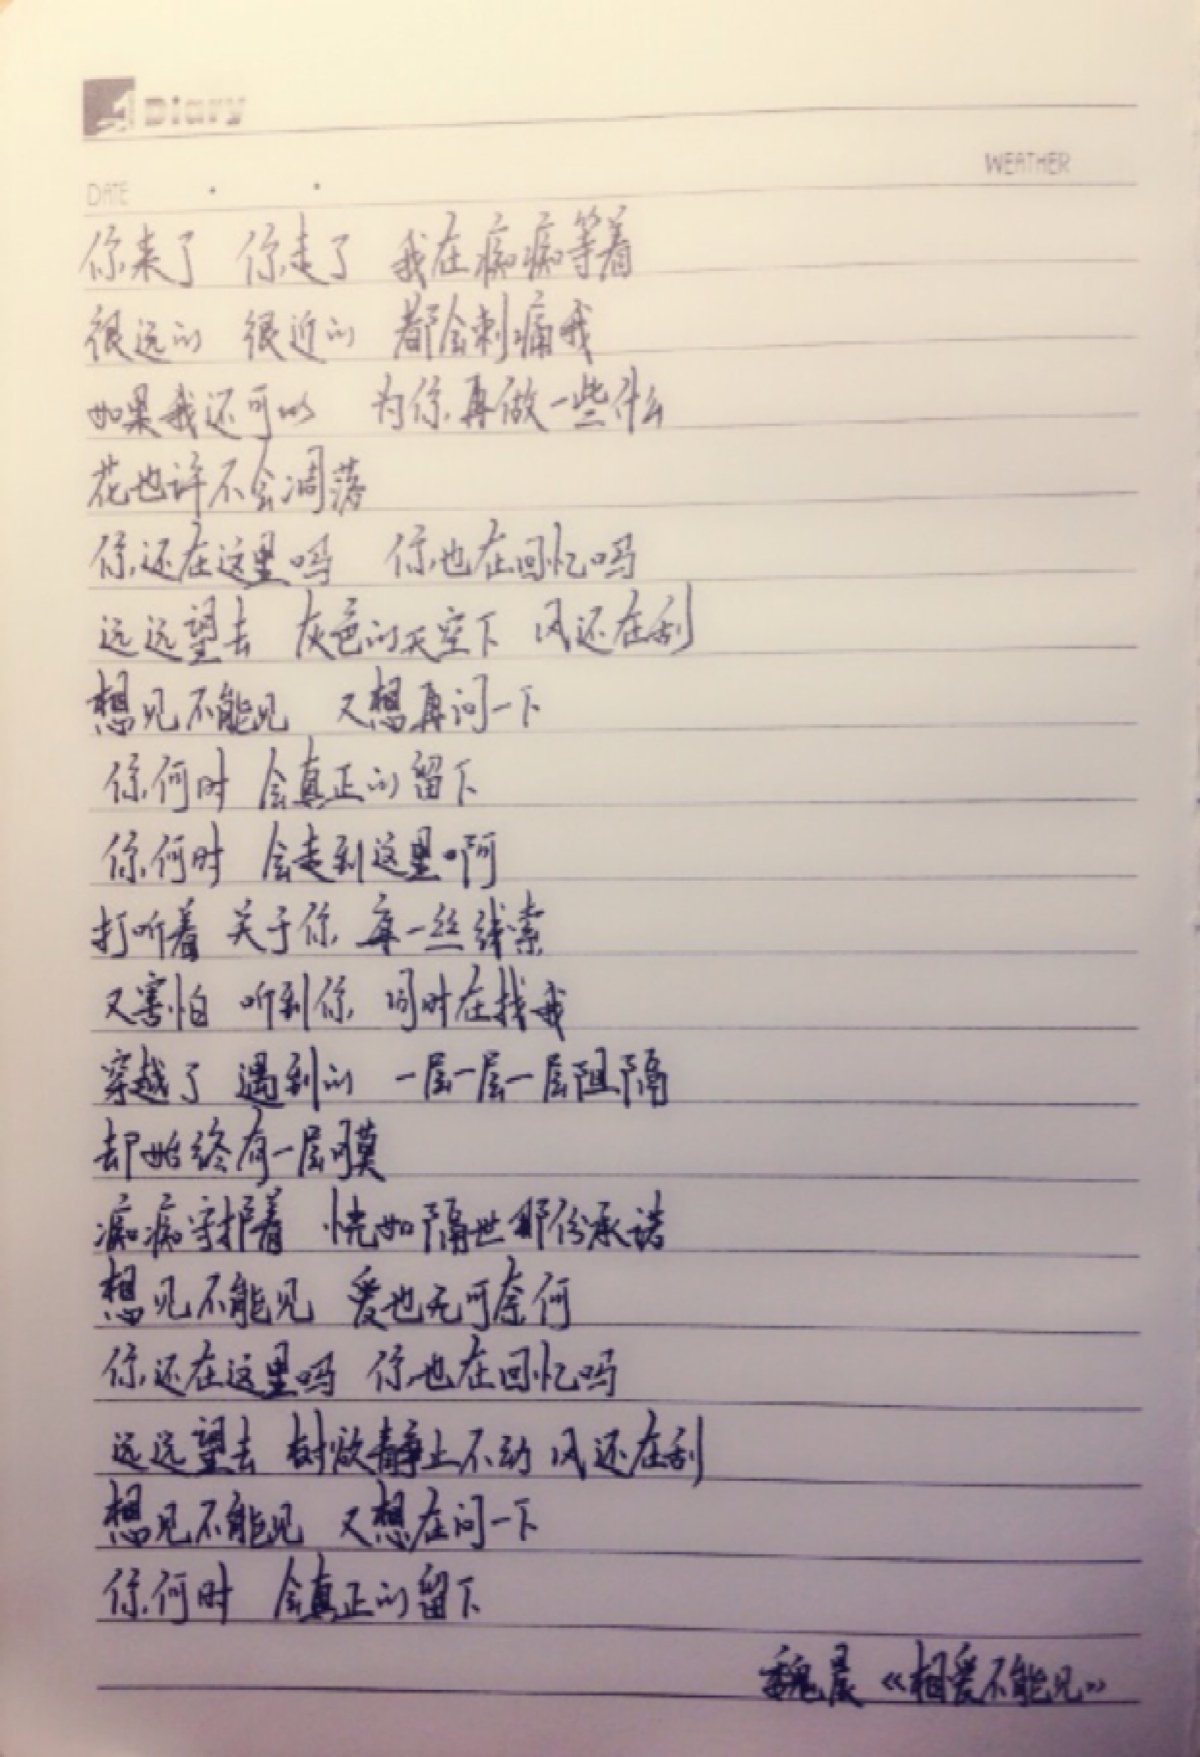 Diary
WEATHER
DATE
你来了 你走了 我在痴痴等着
很远的 很近的 都会刺痛我
如果我还可以 为你再做一些什么
花也许不会凋落
你还在这里吗 你也在回忆吗
远远望去 灰色的天空下 风还在刮
想见不能见 又想再问一下
你何时 会真正的留下
你何时 会走到这里啊
打听着 关于你 每一丝线索
又害怕 听到你 同时在找我
穿越了 遇到的 一层一层一层阻隔
却始终有一层膜
痴痴守护着 恍如隔世那份承诺
想见不能见 爱也无可奈何
你还在这里吗 你也在回忆吗
远远望去 树欲静止不动 风还在刮
想见不能见 又想在问一下
你何时 会真正的留下
魏晨《相爱不能见》